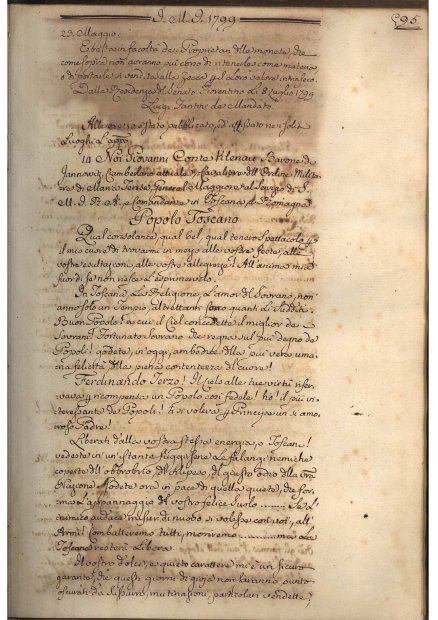 J. M. J. 1799
595.
23. Maggio.
E basta in facoltà de i Proprietarj delle monete, che
come sopra non avranno più corso di ritenerle come materia
o di portarle vendita alla Zecca il loro valore intrinseco.
Dalla Residenza del Senato Fiorentino li 8 Luglio 1799
Luigi Fantini de Mandato.
Altro è stato pubblicato, ed affissato ne soliti
Luoghi
14 Noi Giovanni Conte Klenau, Barone di
Jannovitz, Ciamberlano attuale, e Cavaliere dell Ordine Milita-
re di Maria Teresa, General Maggiore al Servizio di S.
M. I. R. A. e Comandante in Toscana, e Romagna
Popolo Toscano
Qual consolante, qual bel, qual tenero spettacolo
il mio cuore di trovarmi in mezzo alle vostre feste, alle
vostre esultazioni, alle vostre allegrezze! All'anima mia
fuor di se non riesce l'esprimervelo.
In Toscana la Religione, l'amor del Sovrano, non
anno solo un Tempio, altrettanti sono quanti di Sudditi.
Buon Popolo! a cui il Ciel concedette il miglior de
Sovrani! Fortunato Sovrano che regna sul più degno de
Popoli! godete, in oggi, ambidue della più vera uma-
na felicità, della piena contentezza del cuore!
Ferdinando Terzo! Il Cielo alle tue virtù riser-
vava ricompensa un Popolo così fedele! ho! il più in-
teressante de Popoli! ti si voleva Principe un sì amo-
roso Padre!
Liberati dalla vostra stessa energia, o Toscani!
vedeste in un istante fuggirsene le falangi nemiche
coperte dell obbrobrio, del rifiuto, del giusto odio della
Nazione. Godete ora in pace di quella quiete, che for-
ma l'appannaggio del vostro felice suolo ........ Se l'i-
nimico audace misurar di nuovo si volesse con voi, all'
Armi! combatteremo tutti, moriremo ........ ma la
Toscana resterà Libera.
Il vostro dolce, e quieto carattere mi è un sicuro
garante, che questi giorni di gioja non saranno punto
oscurati da dissapori, mutinazioni, particolari vendette;